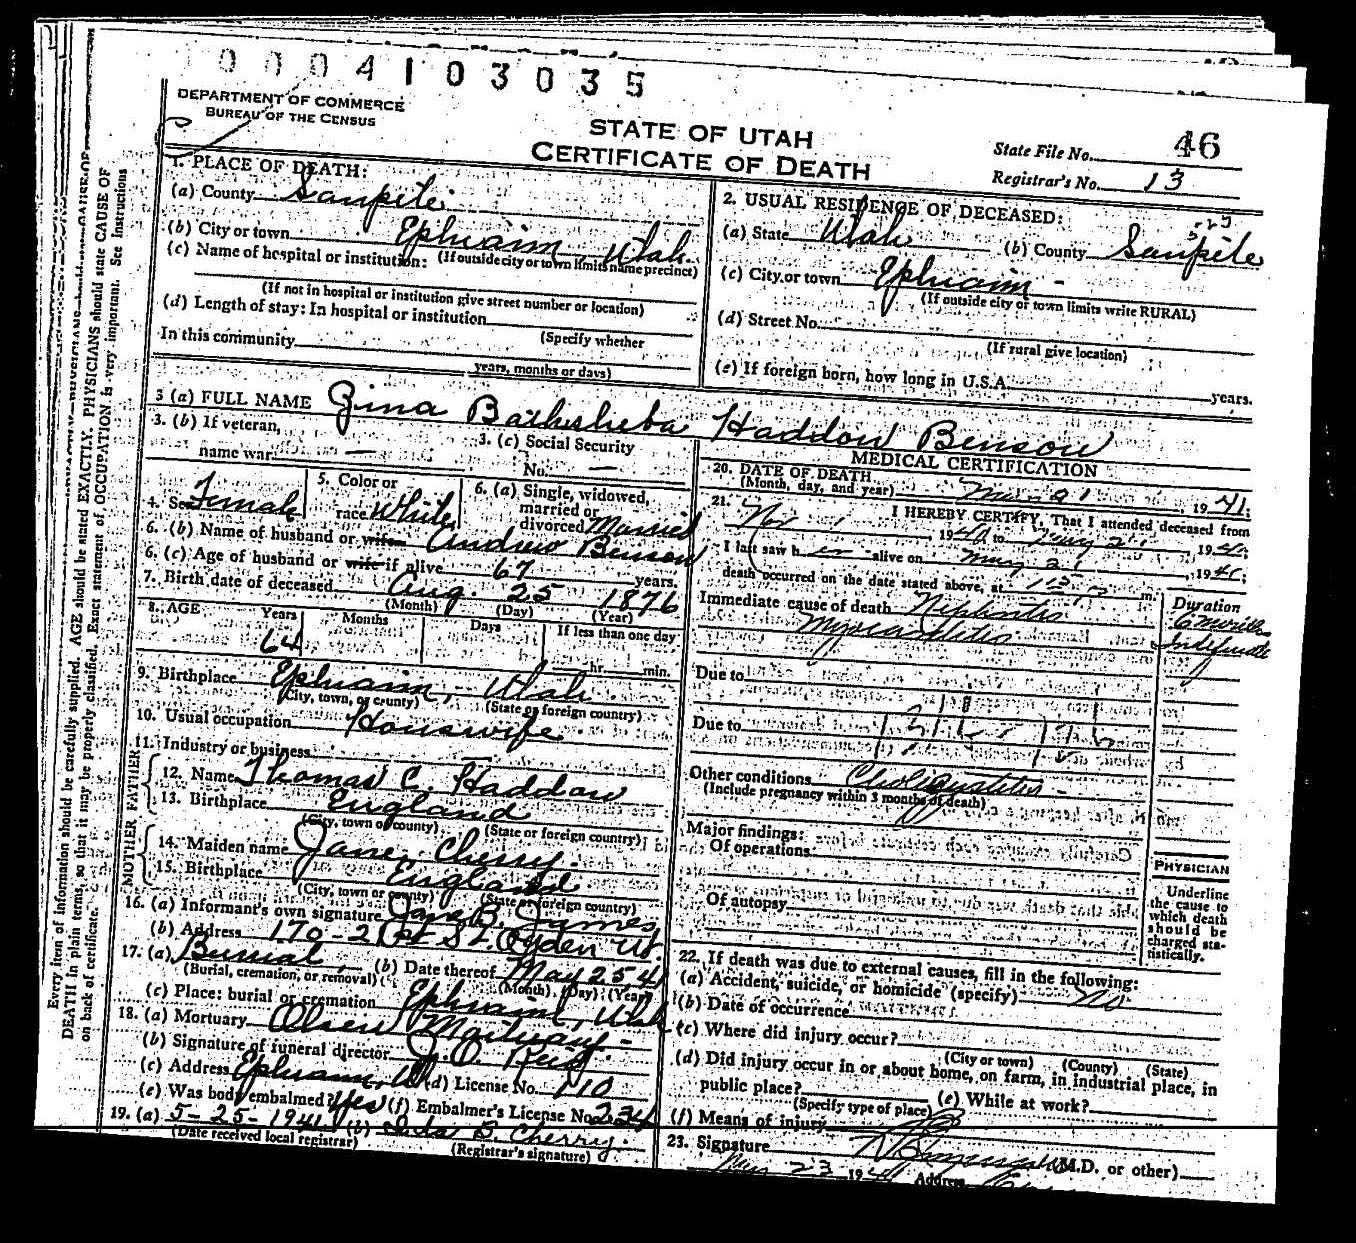 0004103035
DEPARTMENT OF COMMERCE
BUREAU OF THE CENSUS
STATE OF UTAH
CERTIFICATE OF DEATH
State File No. 46
Registrar's No. 13
1. PLACE OF DEATH:
(a) County Sanpete
(b) City or town Ephraim, Utah
(If outside city or town limits name precinct)
(c) Name of hospital or institution:
(If not in hospital or institution give street number or location)
(d) Length of stay: In hospital or institution
(Specify whether
In this community
years, months or days)
2. USUAL RESIDENCE OF DECEASED:
(a) State Utah (b) County Sanpete
(c) City or town Ephraim -
(If outside city or town limits write RURAL)
(d) Street No.
(If rural give location)
(e) If foreign born, how long in U.S.A. years.
3 (a) FULL NAME Zina Bathsheba Haddow Benson
3. (b) If veteran,
name war —
3. (c) Social Security
No. —
4. Sex Female
5. Color or
race White
6. (a) Single, widowed,
married or
divorced Married
6. (b) Name of husband or wife Andrew Benson
6. (c) Age of husband or wife if alive 67 years.
7. Birth date of deceased Aug. 25 1876
(Month) (Day) (Year)
8. AGE Years Months Days If less than one day
64 hr. min.
9. Birthplace Ephraim, Utah
(City, town, or county) (State or foreign country)
10. Usual occupation Housewife
11. Industry or business
FATHER
12. Name Thomas C. Haddow
13. Birthplace England
(City, town or county) (State or foreign country)
MOTHER
14. Maiden name Jane Cherry
15. Birthplace England
(City, town or county) (State or foreign country)
16. (a) Informant's own signature B. James
(b) Address 170-2 St Ogden Ut.
17. (a) Burial, (b) Date thereof May 25 41
(Burial, cremation, or removal) (Month) (Day) (Year)
(c) Place: burial or cremation Ephraim, Utah
18. (a) Mortuary Olsen Mortuary -
(b) Signature of funeral director
(c) Address Ephraim, Ut (d) License No. 110
(e) Was body embalmed? Yes (f) Embalmer's License No. 234
19. (a) 5-25-1941 (b) B. Cherry.
(Date received local registrar) (Registrar's signature)
MEDICAL CERTIFICATION
20. DATE OF DEATH
(Month, day, and year) 1941;
21. I HEREBY CERTIFY, That I attended deceased from
Nov 1940 to 19
I last saw her alive on 19
death occurred on the date stated above, at m.
Duration
Immediate cause of death Nephritis
Myocarditis Indefinite
Due to
Due to
Other conditions
(Include pregnancy within 3 months of death)
Major findings:
Of operations
Of autopsy
PHYSICIAN
Underline
the cause to
which death
should be
charged sta-
tistically.
22. If death was due to external causes, fill in the following:
(a) Accident, suicide, or homicide (specify) No
(b) Date of occurrence
(c) Where did injury occur?
(City or town) (County) (State)
(d) Did injury occur in or about home, on farm, in industrial place, in
public place?
(Specify type of place) (e) While at work?
(f) Means of injury
23. Signature (M.D. or other)
May 23 1941 Address
Every item of information should be carefully supplied. AGE should be stated EXACTLY. PHYSICIANS should state CAUSE OF
DEATH in plain terms, so that it may be properly classified. Exact statement of OCCUPATION is very important. See Instructions
on back of certificate.